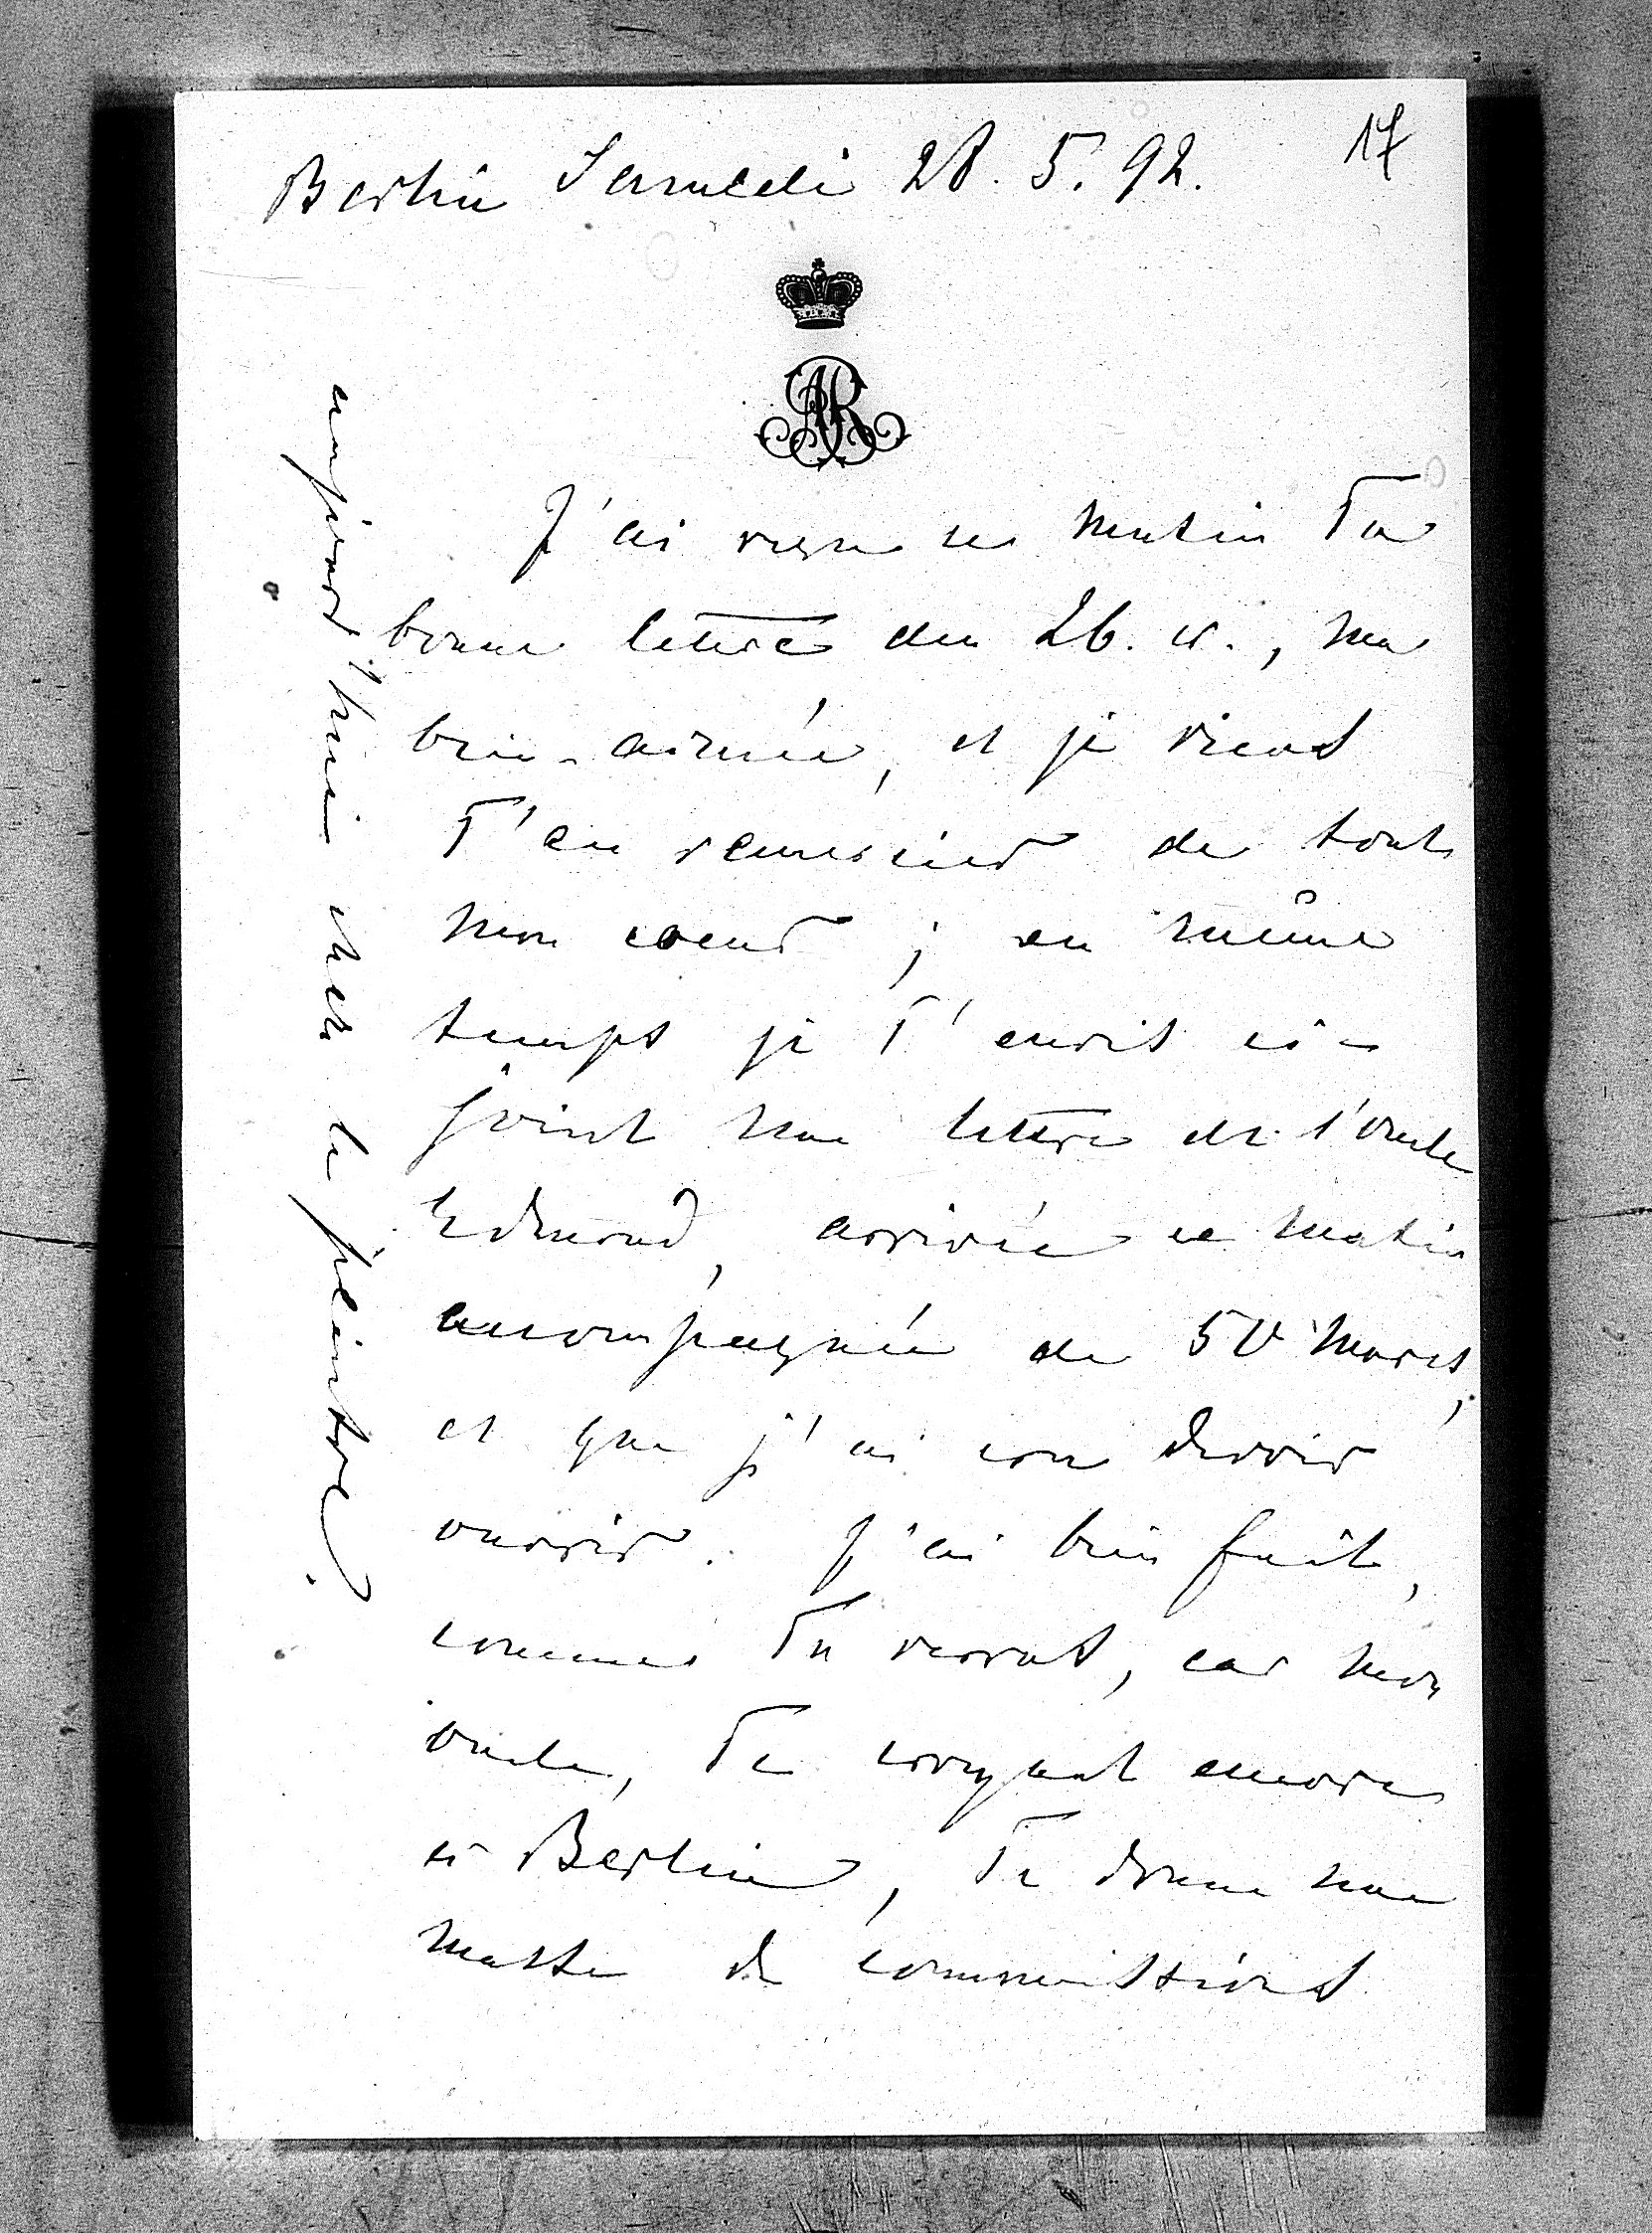 Berlin Samedi 28. 5. 92.
17
J'ai reçu ce matin Ta
bonne lettre du 26. c., ma
bien-aimée, et je viens
T'en remercier de tout
mon coeur ; en même
temps je T'envoie ci-
joint une lettre de l'oncle
Edmond, arrivée ce matin
accompagnée de 50 Marcs,
et que j'ai cru devoir
ouvrir. J'ai bien fait,
comme Tu verras, car mon
oncle, Te croyant encore
à Berlin, Te donne une
masse de commissions
aujourd'hui chez le peintre.